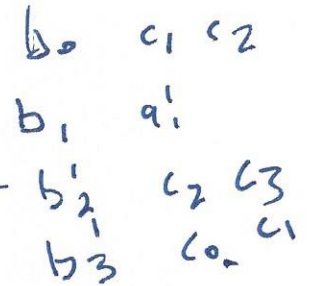 b₀ c₁ c₂
b₁ a'₁
- b'₂ c₂ c₃
b'₃ c₀. c₁